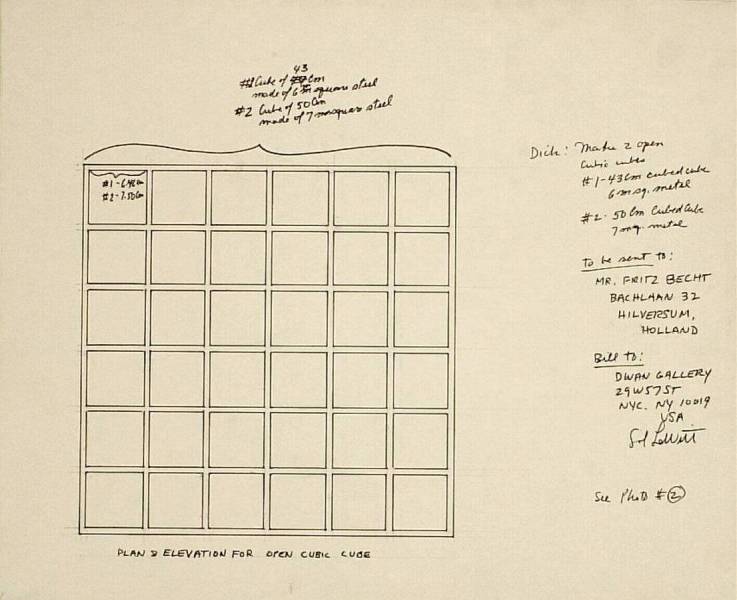 43
#1 Cube of cm
made of 6 m square steel
#2 Cube of 50 Cm
made of 7 m square steel
#1-6.42 cm
#2-7.50 Cm
Dick: Make 2 open
Cubic cubes
#1-43 Cm cubed cube
6 m sq. metal
#2- 50 Cm Cubed Cube
7 m sq. metal
To be sent to:
MR. FRITZ BECHT
BACHLAAN 32
HILVERSUM,
HOLLAND
Bill to:
DWAN GALLERY
29 W 57 ST
NYC. NY 10019
USA
Sol LeWitt
See Photo # 2
PLAN & ELEVATION FOR OPEN CUBIC CUBE